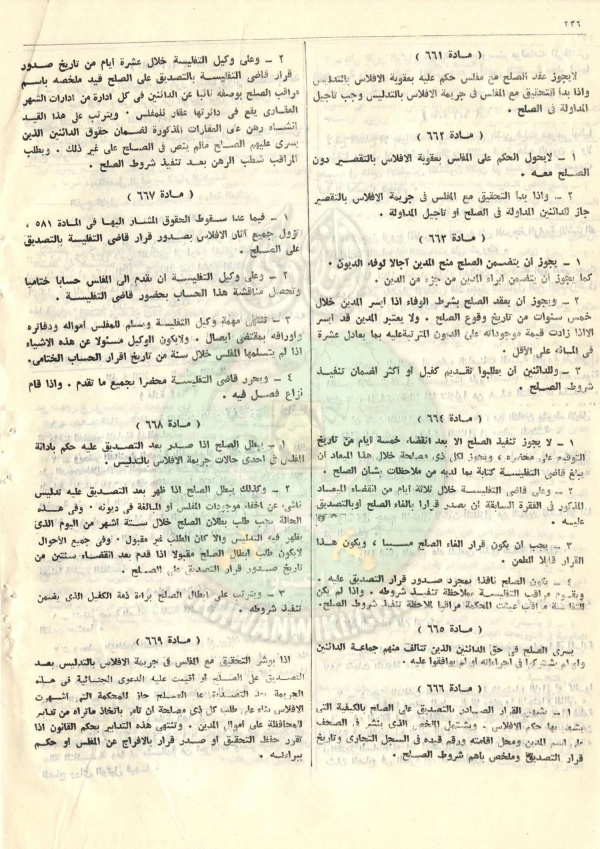 ٢٣٦
( مادة ٦٦١ )
لايجوز عقد الصلح مع مفلس حكم عليه بعقوبة الافلاس بالتدليس
واذا بدأ التحقيق مع المفلس في جريمة الافلاس بالتدليس وجب تأجيل
المداولة في الصلح .
( مادة ٦٦٢ )
١ – لايحول الحكم على المفلس بعقوبة الافلاس بالتقصير دون
الصلح معه .
٢ – واذا بدأ التحقيق مع المفلس في جريمة الافلاس بالتقصير
جاز للدائنين المداولة في الصلح او تاجيل المداولة .
( مادة ٦٦٣ )
١ – يجوز أن يتضمن الصلح منح المدين آجالا لوفاء الديون .
كما يجوز أن يتضمن ابراء المدين من جزء من الدين .
٢ – ويجوز أن يعقد الصلح بشرط الوفاء اذا ايسر المدين خلال
خمس سنوات من تاريخ وقوع الصلح . ولا يعتبر المدين قد ايسر
الااذا زادت قيمة موجوداته على الديون المترتبةعليه بما يعادل عشرة
في المائة على الأقل .
٣ – وللدائنين أن يطلبوا تقديم كفيل أو أكثر لضمان تنفيذ
شروط الصلح .
( مادة ٦٦٤ )
١ – لا يجوز تنفيذ الصلح الا بعد انقضاء خمسة ايام من تاريخ
التوقيع على محضره ، ويجوز لكل ذي مصلحة خلال هذا الميعاد ان
يبلغ قاضي التفليسة كتابة بما لديه من ملاحظات بشأن الصلح .
٢ – وعلى قاضي التفليسة خلال ثلاثة أيام من انقضاء الميعاد
المذكور في الفقرة السابقة أن يصدر قرارا بالغاء الصلح أوبالتصديق
عليه .
٣ – يجب أن يكون قرار الغاء الصلح مسببا ، ويكون هذا
القرار قابلا للطعن .
٤ – يكون الصلح نافذا بمجرد صدور قرار التصديق عليه .
ويقوم مراقب التفليسة بملاحظة تنفيذ شروطه . واذا لم يكن
للتفليسة مراقب عينت المحكمة مراقبا لملاحظة تنفيذ شروط الصلح.
( مادة ٦٦٥ )
يسرى الصلح في حق الدائنين الذين تتألف منهم جماعة الدائنين
ولو لم يشتركوا في اجراءاته أو لم يوافقوا عليه .
( مادة ٦٦٦ )
١ – يشهر القرار الصادر بالتصديق على الصلح بالكيفية التي
يشهر بها حكم الافلاس . ويشتمل الملخص الذي ينشر في الصحف
على اسم المدين ومحل اقامته ورقم قيده في السجل التجاري وتاريخ
قرار التصديق وملخص باهم شروط الصلح .
٢ – وعلى وكيل التفليسة خلال عشرة أيام من تاريخ صدور
قرار قاضي التفليسة بالتصديق على الصلح قيد ملخصه باسم
مراقب الصلح بوصفه نائبا عن الدائنين في كل ادارة من ادارات الشهر
العقاري يقع في دائرتها عقار للمفلس . ويترتب على هذا القيد
انشاء رهن على العقارات المذكورة لضمان حقوق الدائنين الذين
يسرى عليهم الصلح مالم ينص في الصلح على غير ذلك . ويطلب
المراقب شطب الرهن بعد تنفيذ شروط الصلح .
( مادة ٦٦٧ )
١ – فيما عدا سقوط الحقوق المشار اليها في المادة ٥٨١ ،
تزول جميع آثار الافلاس بصدور قرار قاضي التفليسة بالتصديق
على الصلح .
٢ – وعلى وكيل التفليسة أن يقدم الى المفلس حسابا ختاميا
وتحصل مناقشة هذا الحساب بحضور قاضي التفليسة .
٣ – تنتهى مهمة وكيل التفليسة ويسلم للمفلس أمواله ودفاتره
وأوراقه بمقتضى ايصال . ولايكون الوكيل مسئولا عن هذه الاشياء
اذا لم يتسلمها المفلس خلال سنة من تاريخ اقرار الحساب الختامي.
٤ – ويحرر قاضي التفليسة محضرا بجميع ما تقدم . واذا قام
نزاع فصل فيه .
( مادة ٦٦٨ )
١ – يبطل الصلح اذا صدر بعد التصديق عليه حكم بادانة
المفلس في احدى حالات جريمة الافلاس بالتدليس .
٢ – وكذلك يبطل الصلح اذا ظهر بعد التصديق عليه تدليس
ناشىء عن اخفاء موجودات المفلس أو المبالغة في ديونه . وفي هذه
الحالة يجب طلب بطلان الصلح خلال ستة اشهر من اليوم الذي
يظهر فيه التدليس والا كان الطلب غير مقبول . وفي جميع الأحوال
لايكون طلب ابطال الصلح مقبولا اذا قدم بعد انقضاء سنتين من
تاريخ صدور قرار التصديق على الصلح .
٣ – ويترتب على ابطال الصلح براءة ذمة الكفيل الذي يضمن
تنفيذ شروطه .
( مادة ٦٦٩ )
اذا بوشر التحقيق مع المفلس في جريمة الافلاس بالتدليس بعد
التصديق على الصلح أو اقيمت عليه الدعوى الجنائية في هذه
الجريمة بعد التصديق على الصلح جاز للمحكمة التي اشهرت
الافلاس بناء على طلب كل ذي مصلحة أن تأمر باتخاذ ماتراه من تدابير
للمحافظة على أموال المدين . وتنتهى هذه التدابير بحكم القانون اذا
تقرر حفظ التحقيق أو صدر قرار بالافراج عن المفلس أو حكم
ببراءته .